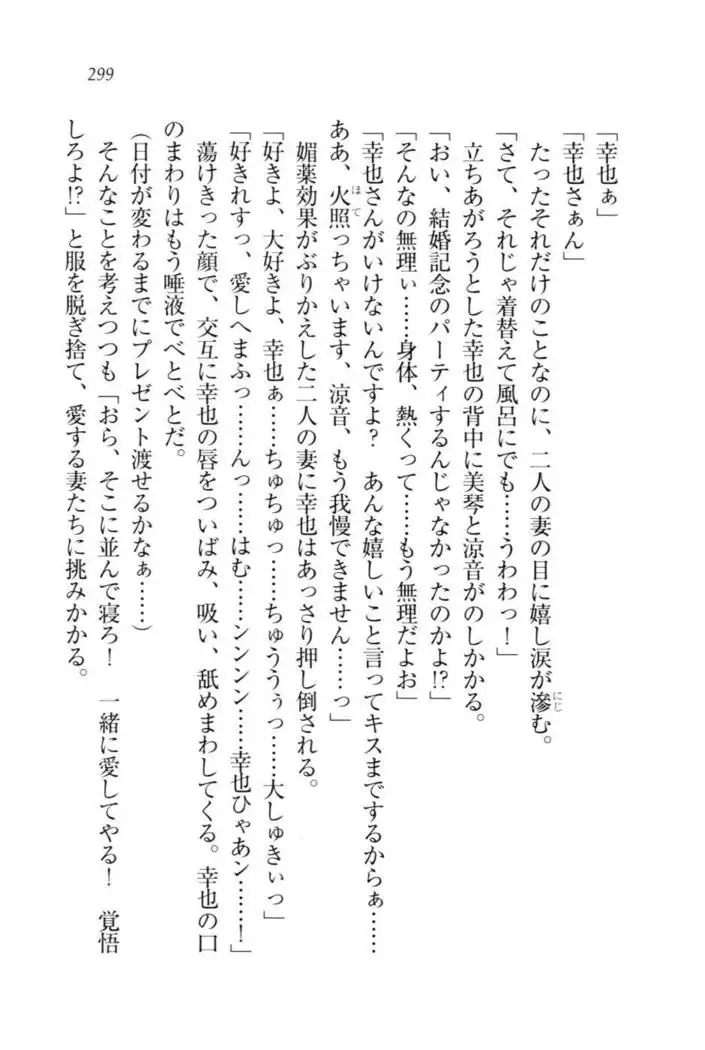 299
「幸也ぁ」
「幸也さぁん」
　たったそれだけのことなのに、二人の妻の目に嬉し涙が滲む。
「さて、それじゃ着替えて風呂にでも……うわわっ！」
　立ちあがろうとした幸也の背中に美琴と涼音がのしかかる。
「おい、結婚記念のパーティするんじゃなかったのかよ!?」
「そんなの無理ぃ……身体、熱くって……もう無理だよお」
「幸也さんがいけないんですよ？　あんな嬉しいこと言ってキスまでするからぁ……
ああ、火照っちゃいます、涼音、もう我慢できません……っ」
　媚薬効果がぶりかえした二人の妻に幸也はあっさり押し倒される。
「好きよ、大好きよ、幸也ぁ……ちゅちゅっ……ちゅううぅっ……大しゅきぃっ」
「好きれすっ、愛しへまふっ……んっ……はむ……シンンン……幸也ひゃあン……！」
　蕩けきった顔で、交互に幸也の唇をついばみ、吸い、舐めまわしてくる。幸也の口
のまわりはもう唾液でべとべとだ。
（日付が変わるまでにプレゼント渡せるかなぁ……）
　そんなことを考えつつも「おら、そこに並んで寝ろ！　一緒に愛してやる！　覚悟
しろよ!?」と服を脱ぎ捨て、愛する妻たちに挑みかかる。
にじ
ほて